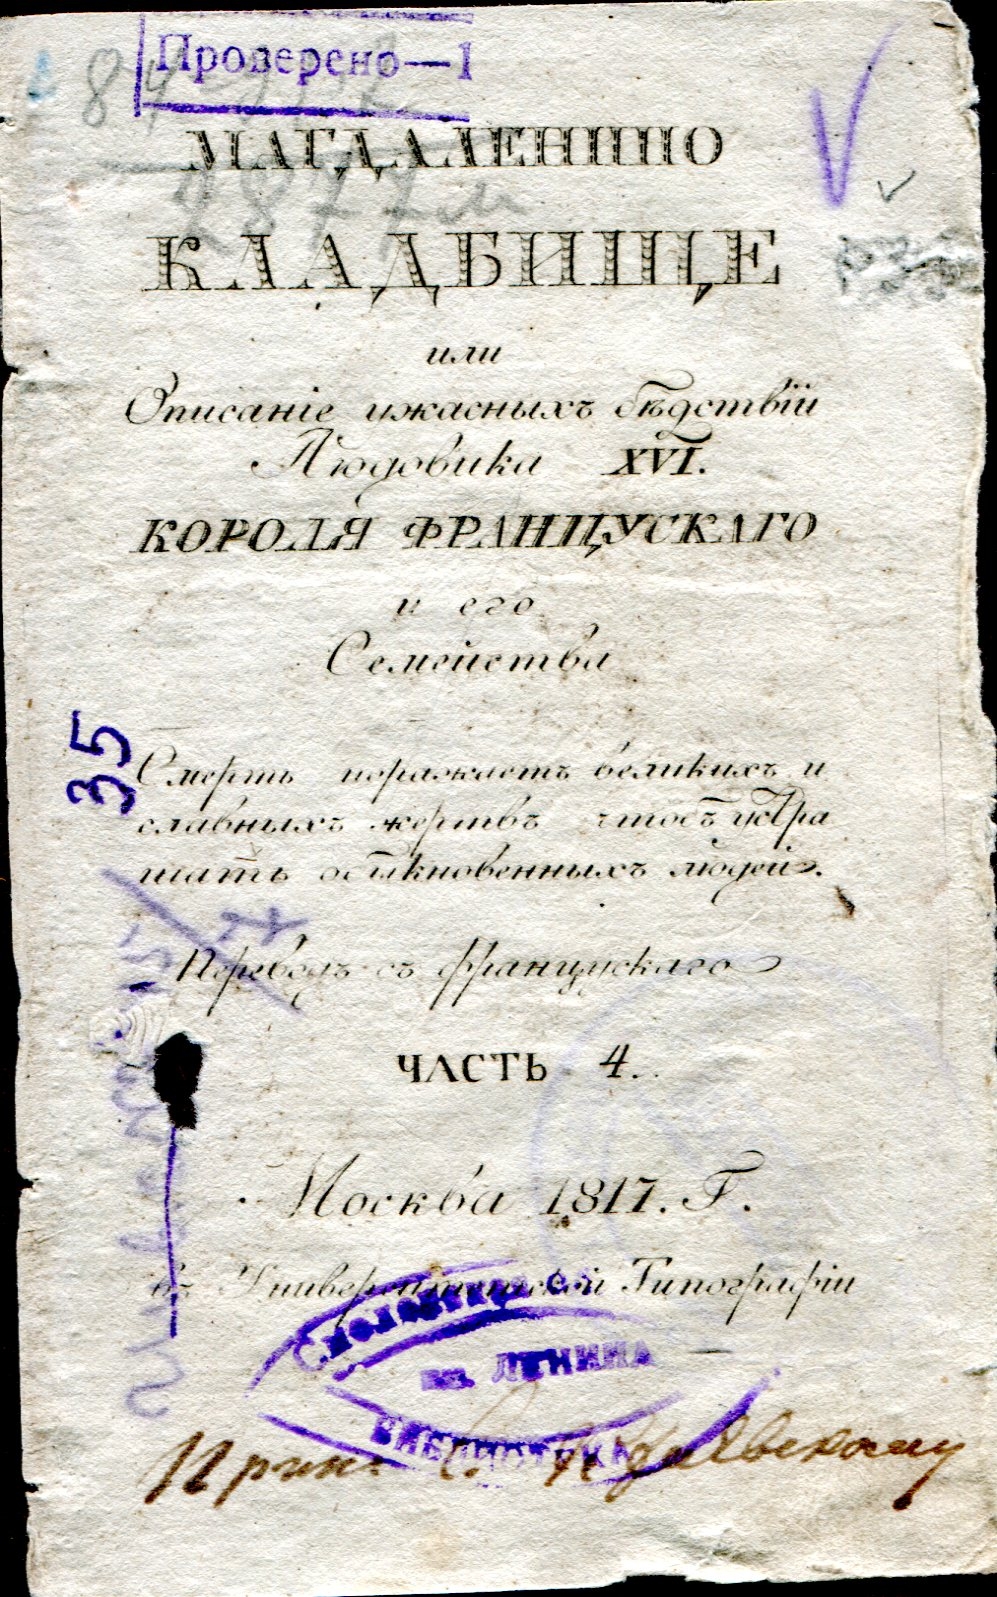 Проверено—1
84
2877м
МАГДАЛЕНИНО
КЛАДБИЩЕ
или
Описанiе ужасныхъ бѣдствiй
Людовика XVI.
КОРОЛЯ ФРАНЦУСКАГО
и его
Семейства
35
Смерть поражаетъ великихъ и
славныхъ жертвъ чтобъ устра
шать обыкновенныхъ людей.
Переводъ съ французскаго
ЧАСТЬ 4.
Москва 1817. Г.
въ Университетской Типографiи
им. ЛЕНИНА
БИБЛИОТЕКА